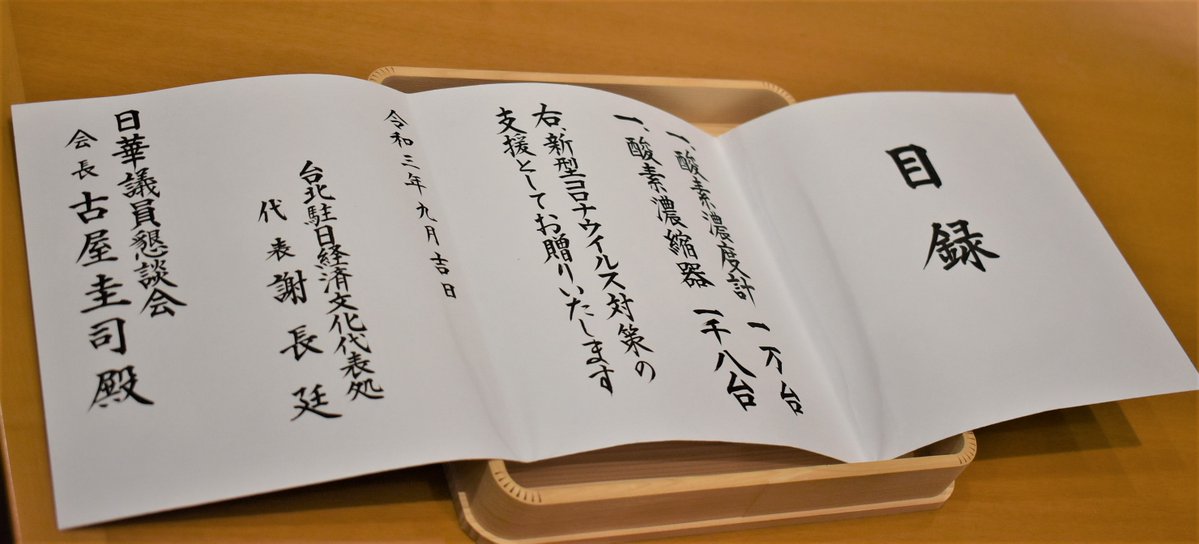 目録
一、酸素濃度計 一万台
一、酸素濃縮器 一千八台
右、新型コロナウイルス対策の
支援としてお贈りいたします
令和三年九月吉日
台北駐日経済文化代表処
代表 謝長廷
日華議員懇談会
会長 古屋圭司殿